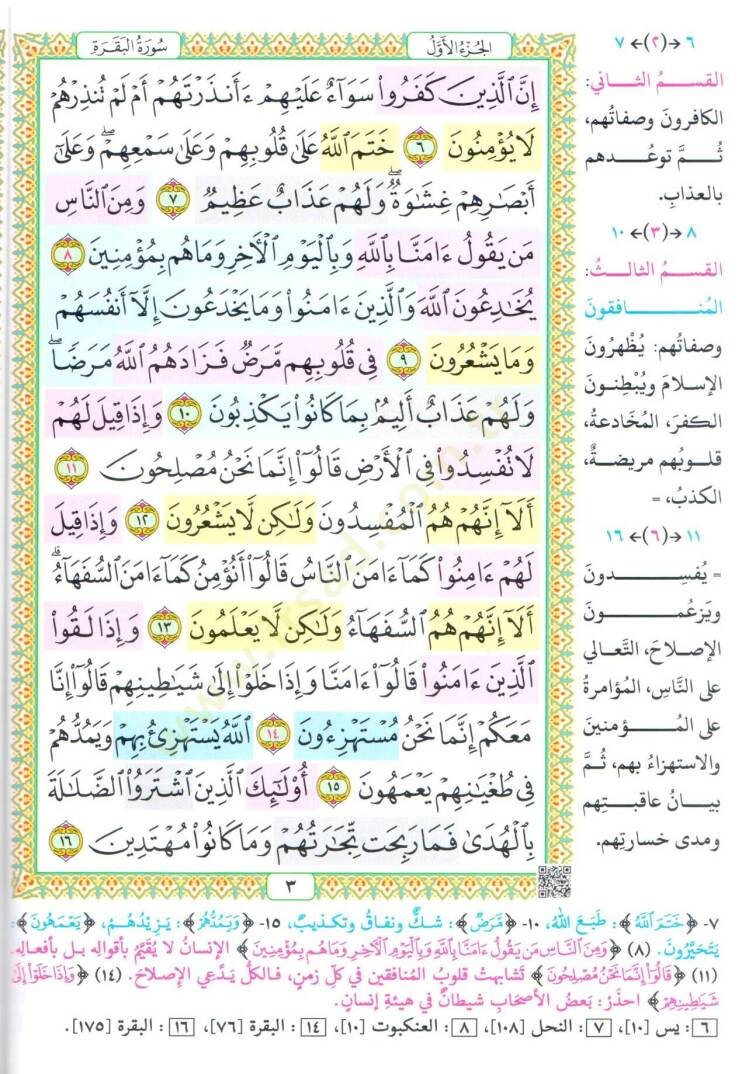 سُورَةُ البَقَرَةِ
الجُزءُ الأوَّلُ
إِنَّ ٱلَّذِينَ كَفَرُوا۟ سَوَآءٌ عَلَيْهِمْ ءَأَنذَرْتَهُمْ أَمْ لَمْ تُنذِرْهُمْ
لَا يُؤْمِنُونَ ٦ خَتَمَ ٱللَّهُ عَلَىٰ قُلُوبِهِمْ وَعَلَىٰ سَمْعِهِمْ ۖ وَعَلَىٰٓ
أَبْصَـٰرِهِمْ غِشَـٰوَةٌ ۖ وَلَهُمْ عَذَابٌ عَظِيمٌ ٧ وَمِنَ ٱلنَّاسِ
مَن يَقُولُ ءَامَنَّا بِٱللَّهِ وَبِٱلْيَوْمِ ٱلْـَٔاخِرِ وَمَا هُم بِمُؤْمِنِينَ ٨
يُخَـٰدِعُونَ ٱللَّهَ وَٱلَّذِينَ ءَامَنُوا۟ وَمَا يَخْدَعُونَ إِلَّآ أَنفُسَهُمْ
وَمَا يَشْعُرُونَ ٩ فِى قُلُوبِهِم مَّرَضٌ فَزَادَهُمُ ٱللَّهُ مَرَضًا ۖ
وَلَهُمْ عَذَابٌ أَلِيمٌۢ بِمَا كَانُوا۟ يَكْذِبُونَ ١٠ وَإِذَا قِيلَ لَهُمْ
لَا تُفْسِدُوا۟ فِى ٱلْأَرْضِ قَالُوٓا۟ إِنَّمَا نَحْنُ مُصْلِحُونَ ١١
أَلَآ إِنَّهُمْ هُمُ ٱلْمُفْسِدُونَ وَلَـٰكِن لَّا يَشْعُرُونَ ١٢ وَإِذَا قِيلَ
لَهُمْ ءَامِنُوا۟ كَمَآ ءَامَنَ ٱلنَّاسُ قَالُوٓا۟ أَنُؤْمِنُ كَمَآ ءَامَنَ ٱلسُّفَهَآءُ ۗ
أَلَآ إِنَّهُمْ هُمُ ٱلسُّفَهَآءُ وَلَـٰكِن لَّا يَعْلَمُونَ ١٣ وَإِذَا لَقُوا۟
ٱلَّذِينَ ءَامَنُوا۟ قَالُوٓا۟ ءَامَنَّا وَإِذَا خَلَوْا۟ إِلَىٰ شَيَـٰطِينِهِمْ قَالُوٓا۟ إِنَّا
مَعَكُمْ إِنَّمَا نَحْنُ مُسْتَهْزِءُونَ ١٤ ٱللَّهُ يَسْتَهْزِئُ بِهِمْ وَيَمُدُّهُمْ
فِى طُغْيَـٰنِهِمْ يَعْمَهُونَ ١٥ أُو۟لَـٰٓئِكَ ٱلَّذِينَ ٱشْتَرَوُا۟ ٱلضَّلَـٰلَةَ
بِٱلْهُدَىٰ فَمَا رَبِحَت تِّجَـٰرَتُهُمْ وَمَا كَانُوا۟ مُهْتَدِينَ ١٦
٣
٦ ←(٢)→ ٧
القسمُ الثاني:
الكافرونَ وصفاتُهم،
ثُمَّ توعُدهم
بالعذابِ.
٨ ←(٣)→ ١٠
القسمُ الثالثُ:
المُنافقونَ
وصفاتُهم: يُظْهِرُونَ
الإسلامَ ويُبْطِنونَ
الكفرَ، المُخَادعةُ،
قلوبُهم مريضةٌ،
الكذبُ، =
١١ ←(٦)→ ١٦
= يُفسِدونَ
ويَزعُمونَ
الإصلاحَ، التَّعالي
على النَّاسِ، المُؤامرةُ
على المُؤمنينَ
والاستهزاءُ بهم، ثُمَّ
بيانُ عاقبتِهم
ومدى خسارتِهم.
٧- ﴿خَتَمَ ٱللَّهُ﴾: طَبَعَ اللهُ، ١٠- ﴿مَّرَضٌ﴾: شكٌّ ونفاقٌ وتكذيبٌ، ١٥- ﴿وَيَمُدُّهُمْ﴾: يَزِيْدُهُمْ، ﴿يَعْمَهُونَ﴾:
يَتَحَيَّرُونَ. (٨) ﴿وَمِنَ ٱلنَّاسِ مَن يَقُولُ ءَامَنَّا بِٱللَّهِ وَبِٱلْيَوْمِ ٱلْـَٔاخِرِ وَمَا هُم بِمُؤْمِنِينَ﴾ الإنسانُ لا يُقيَّمُ بأقوالِه بل بأفعالِه.
(١١) ﴿قَالُوٓا۟ إِنَّمَا نَحْنُ مُصْلِحُونَ﴾ تَشابهتْ قلوبُ المُنافقين في كلِّ زمنٍ، فالكلُّ يدَّعي الإصلاحَ. (١٤) ﴿وَإِذَا خَلَوْا۟ إِلَىٰ
شَيَـٰطِينِهِمْ﴾ احذَرْ: بَعضُ الأصْحَابِ شيطانٌ في هيئةِ إنسانٍ.
٦: يس [١٠]، ٧: النحل [١٠٨]، ٨: العنكبوت [١٠]، ١٤: البقرة [٧٦]، ١٦: البقرة [١٧٥].